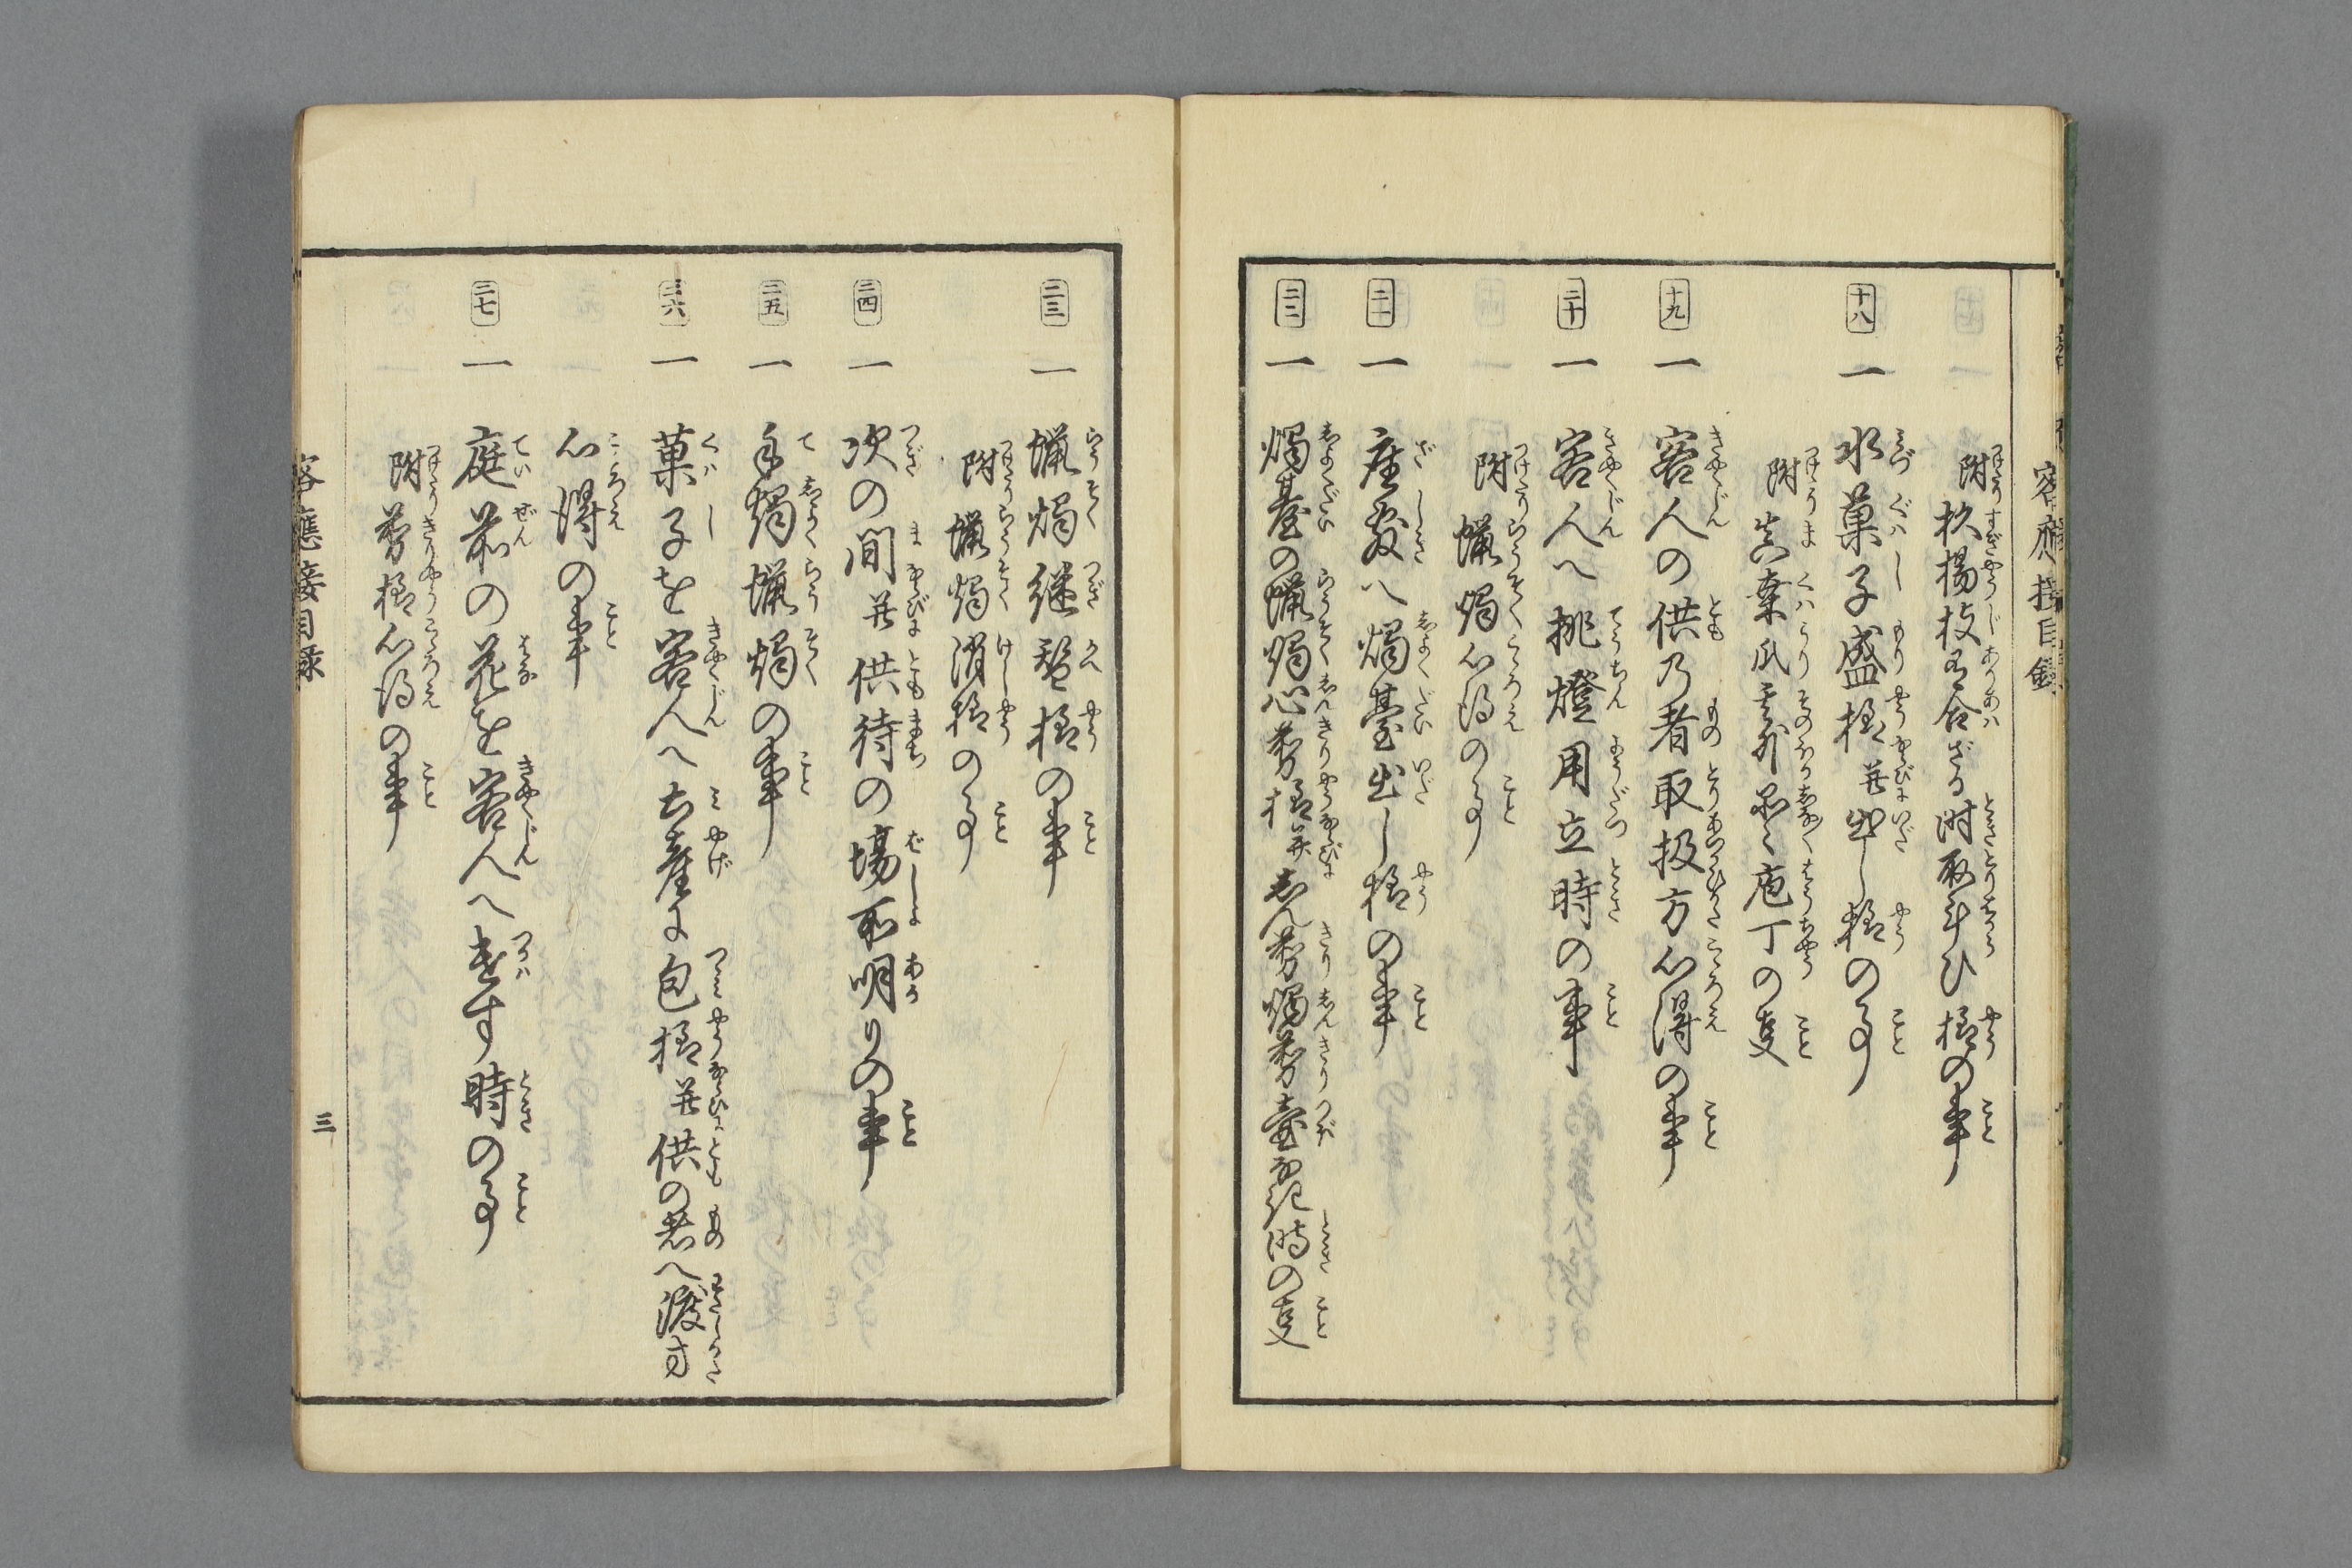 客應接目録
附杦楊枝有合ざる時取斗ひ様の事
十八 一 水菓子盛様并出し様の事
附真桒瓜其外品々庖丁の叓
十九 一 客人の供乃者取扱方心得の事
二十 一 客人へ挑燈用立時の事
附蝋燭心得の事
二一 一 座敷へ燭臺出し様の事
二二 一 燭臺の蝋燭心剪様并しん剪燭剪壷なき時の叓
二三 一 蝋燭継替様の事
附蝋燭消様の事
二四 一 次の間并供待の場所明りの事
二五 一 手燭蝋燭の事
二六 一 菓子を客人へ土産に包様并供の者へ渡方
心得の事
二七 一 庭前の花を客人へ遣す時の事
附剪様心得の事
客應接目録
三